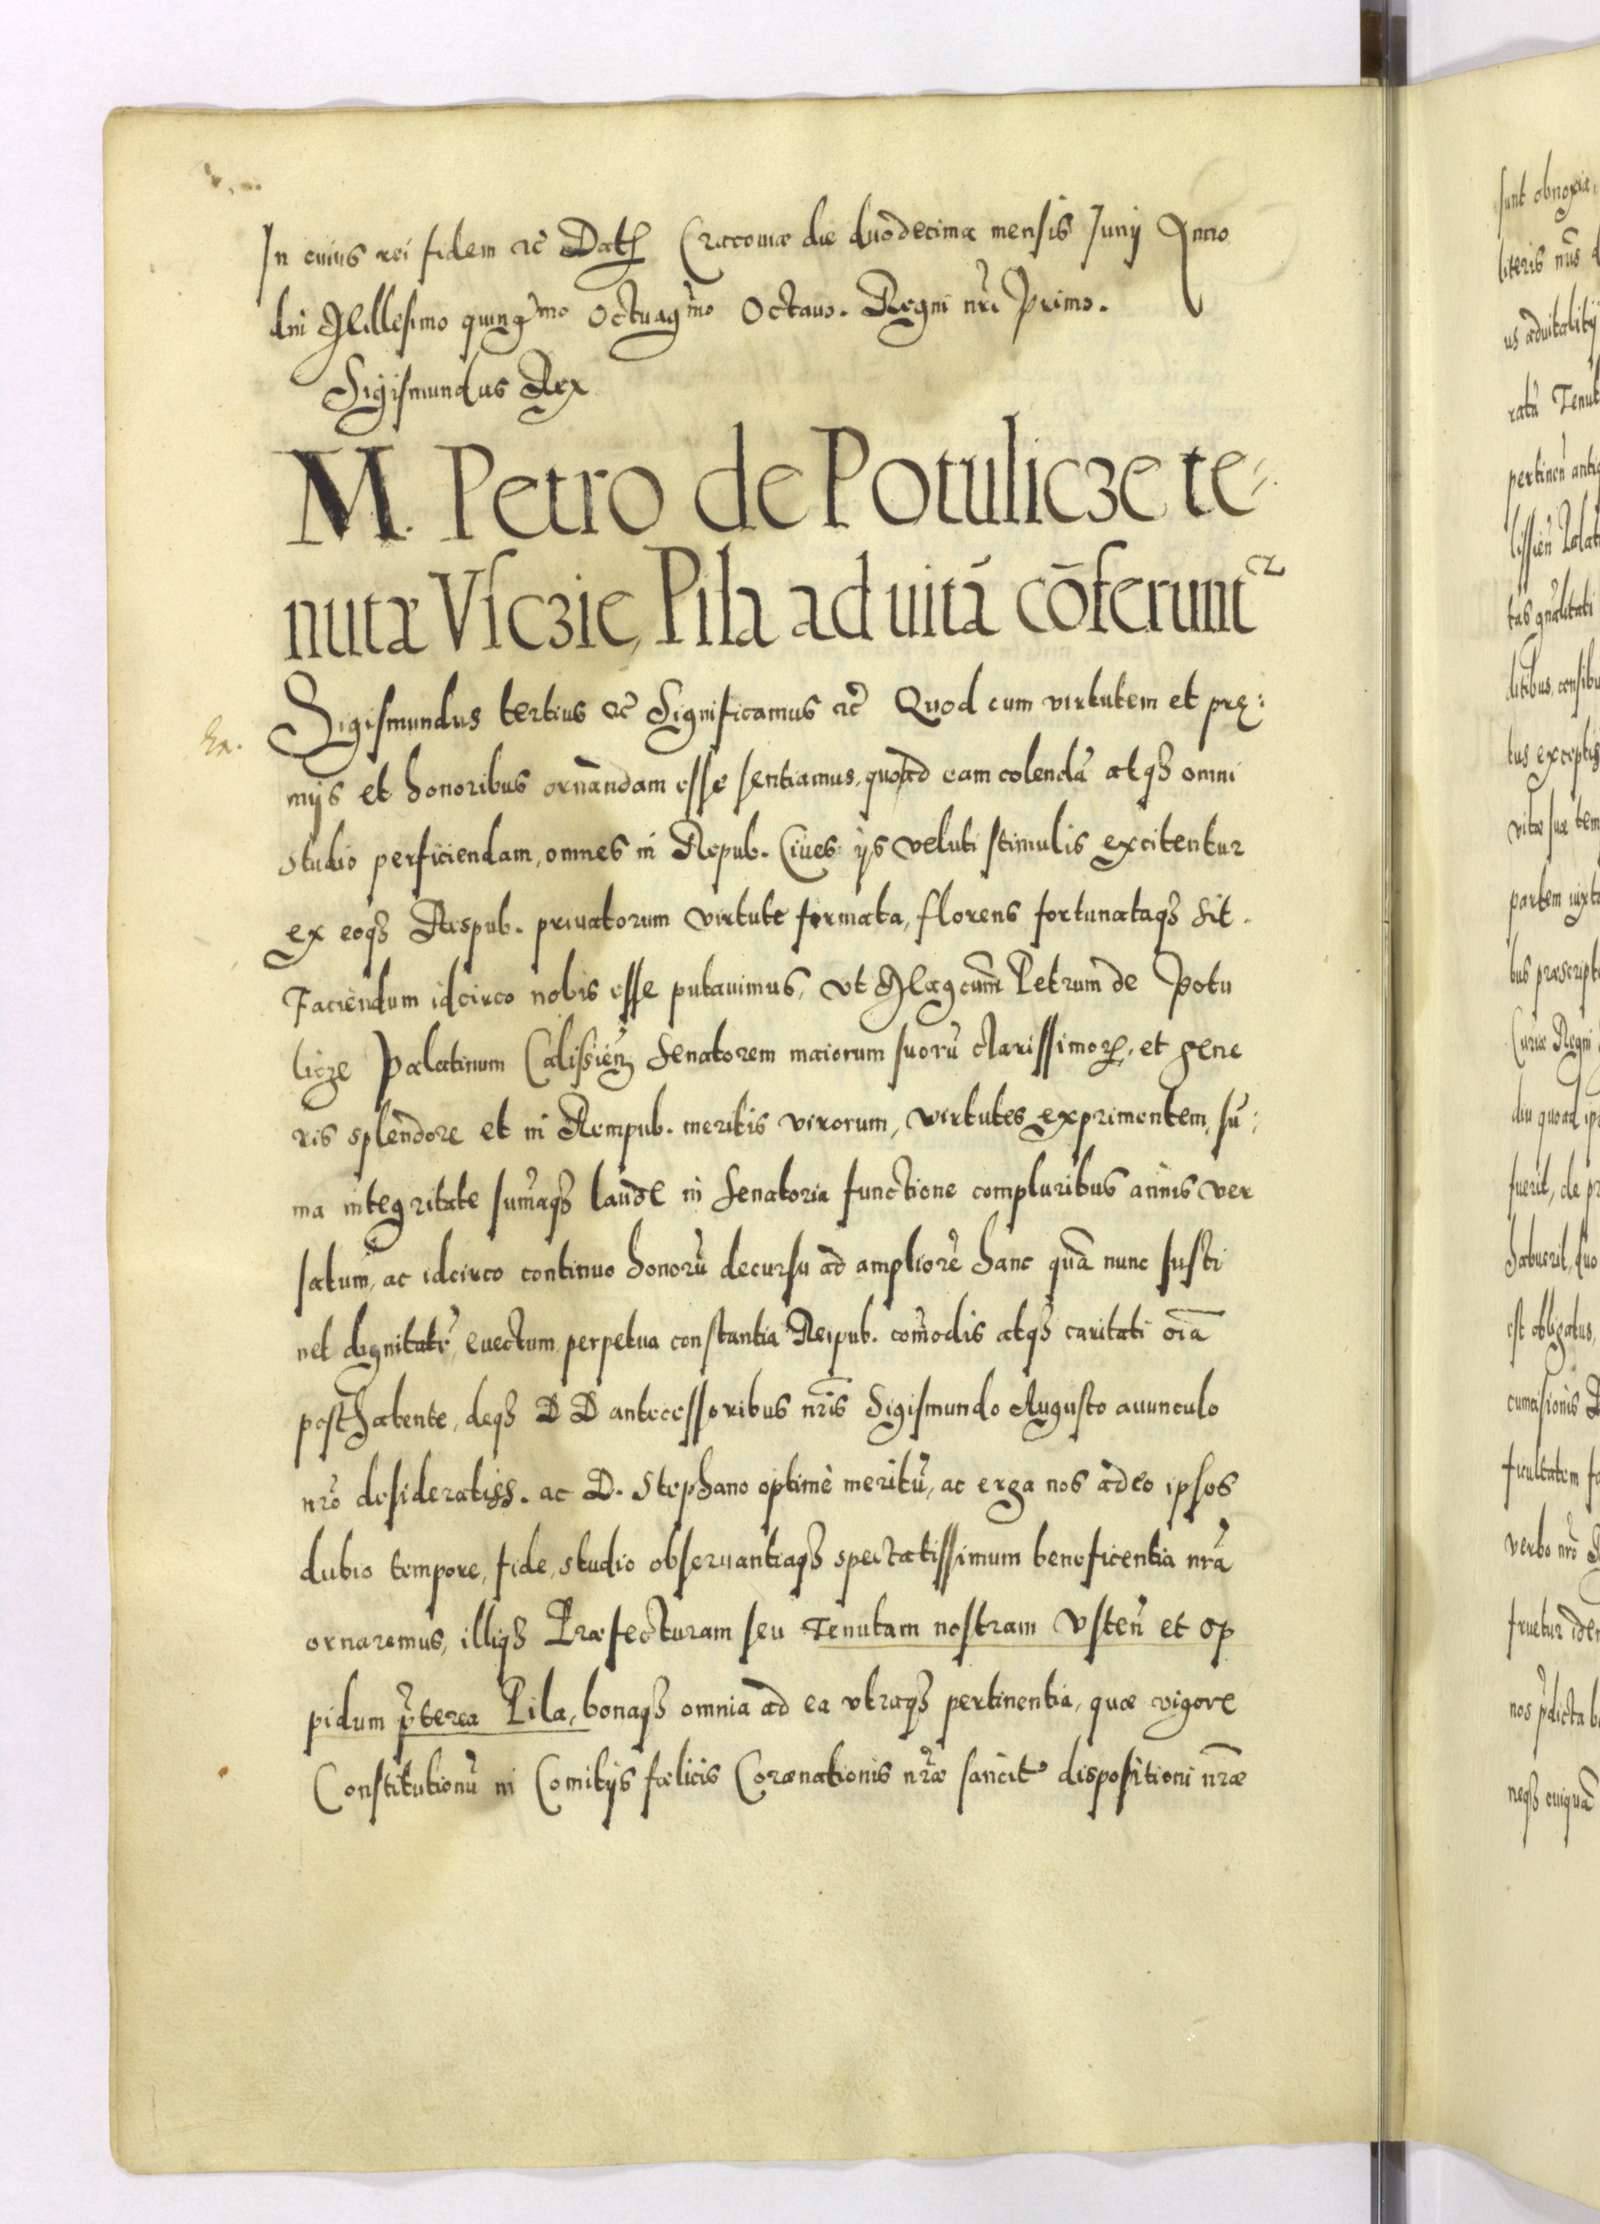 In cuius rei fidem ac Dat. Cracouiæ die duodecima mensis Junÿ Anno
dni Millesimo quingmo Octuagmo Octauo. Regni nri Primo.
Sigismundus Rex
M. Petro de Potulicze te-
nuta Vsczie, Pila ad uitā cōferuntr
Sigismundus tertius ac Significamus ac Quod cum virtutem et prę:
mÿs et honoribus ornandam esse sentiamus, quo ad eam colendā atqз omni
studio perficiendam, omnes in Repub. Ciues ÿs veluti stimulis excitentur
ex eoqз Respub. priuatorum virtute firmata, florens fortunataqз sit.
Faciendum idcirco nobis esse putauimus, vt Magcum Petrum de Potu
licze Palatinum Calissien Senatorem maiorum suorū clarissimoꝝ, et gene
ris splendore et in Rempub. meritis virorum, virtutes exprimentem, su:
ma integritate sumaqз laude in Senatoria functione compluribus annis ver
satum, ac idcirco continuo honorū decursu ad ampliorē hanc quā nunc susti
net dignitatē, euectum, perpetua constantia Reipub. comodis atqз caritati oīa
posthabente, deqз D D antecessoribus nris Sigismundo Augusto auunculo
nro desideratiss. ac D. Stephano optimè meritū, ac erga nos adeo ipsos
dubio tempore, fide, studio obseruantiaqз spectatissimum beneficentia nrā
ornaremus, illiqз Præfecturam seu Tenutam nostram Vsten et op
pidum pterea Pila, bonaqз omnia ad ea vtraqз pertinentia, quæ vigore
Constitutionū in Comitÿs fœlicis Coronationis nræ sancit dispositioni nræ
sunt obnoxia,
literis nris
us aduitalitÿ
ratū Tenut
pertinen anti
lissien Palat
tas gnalitati
ditibus, censibu
tus exceptis
vitæ suæ tem
partem iuxta
bus præscript
Curiæ Regni
diu quoad ip
fuerit, de pr
habuerit, quo
est obligatus,
ficultatem fa
verbo nro
fruetur iden
nos pdicta b
neqз cuiquā